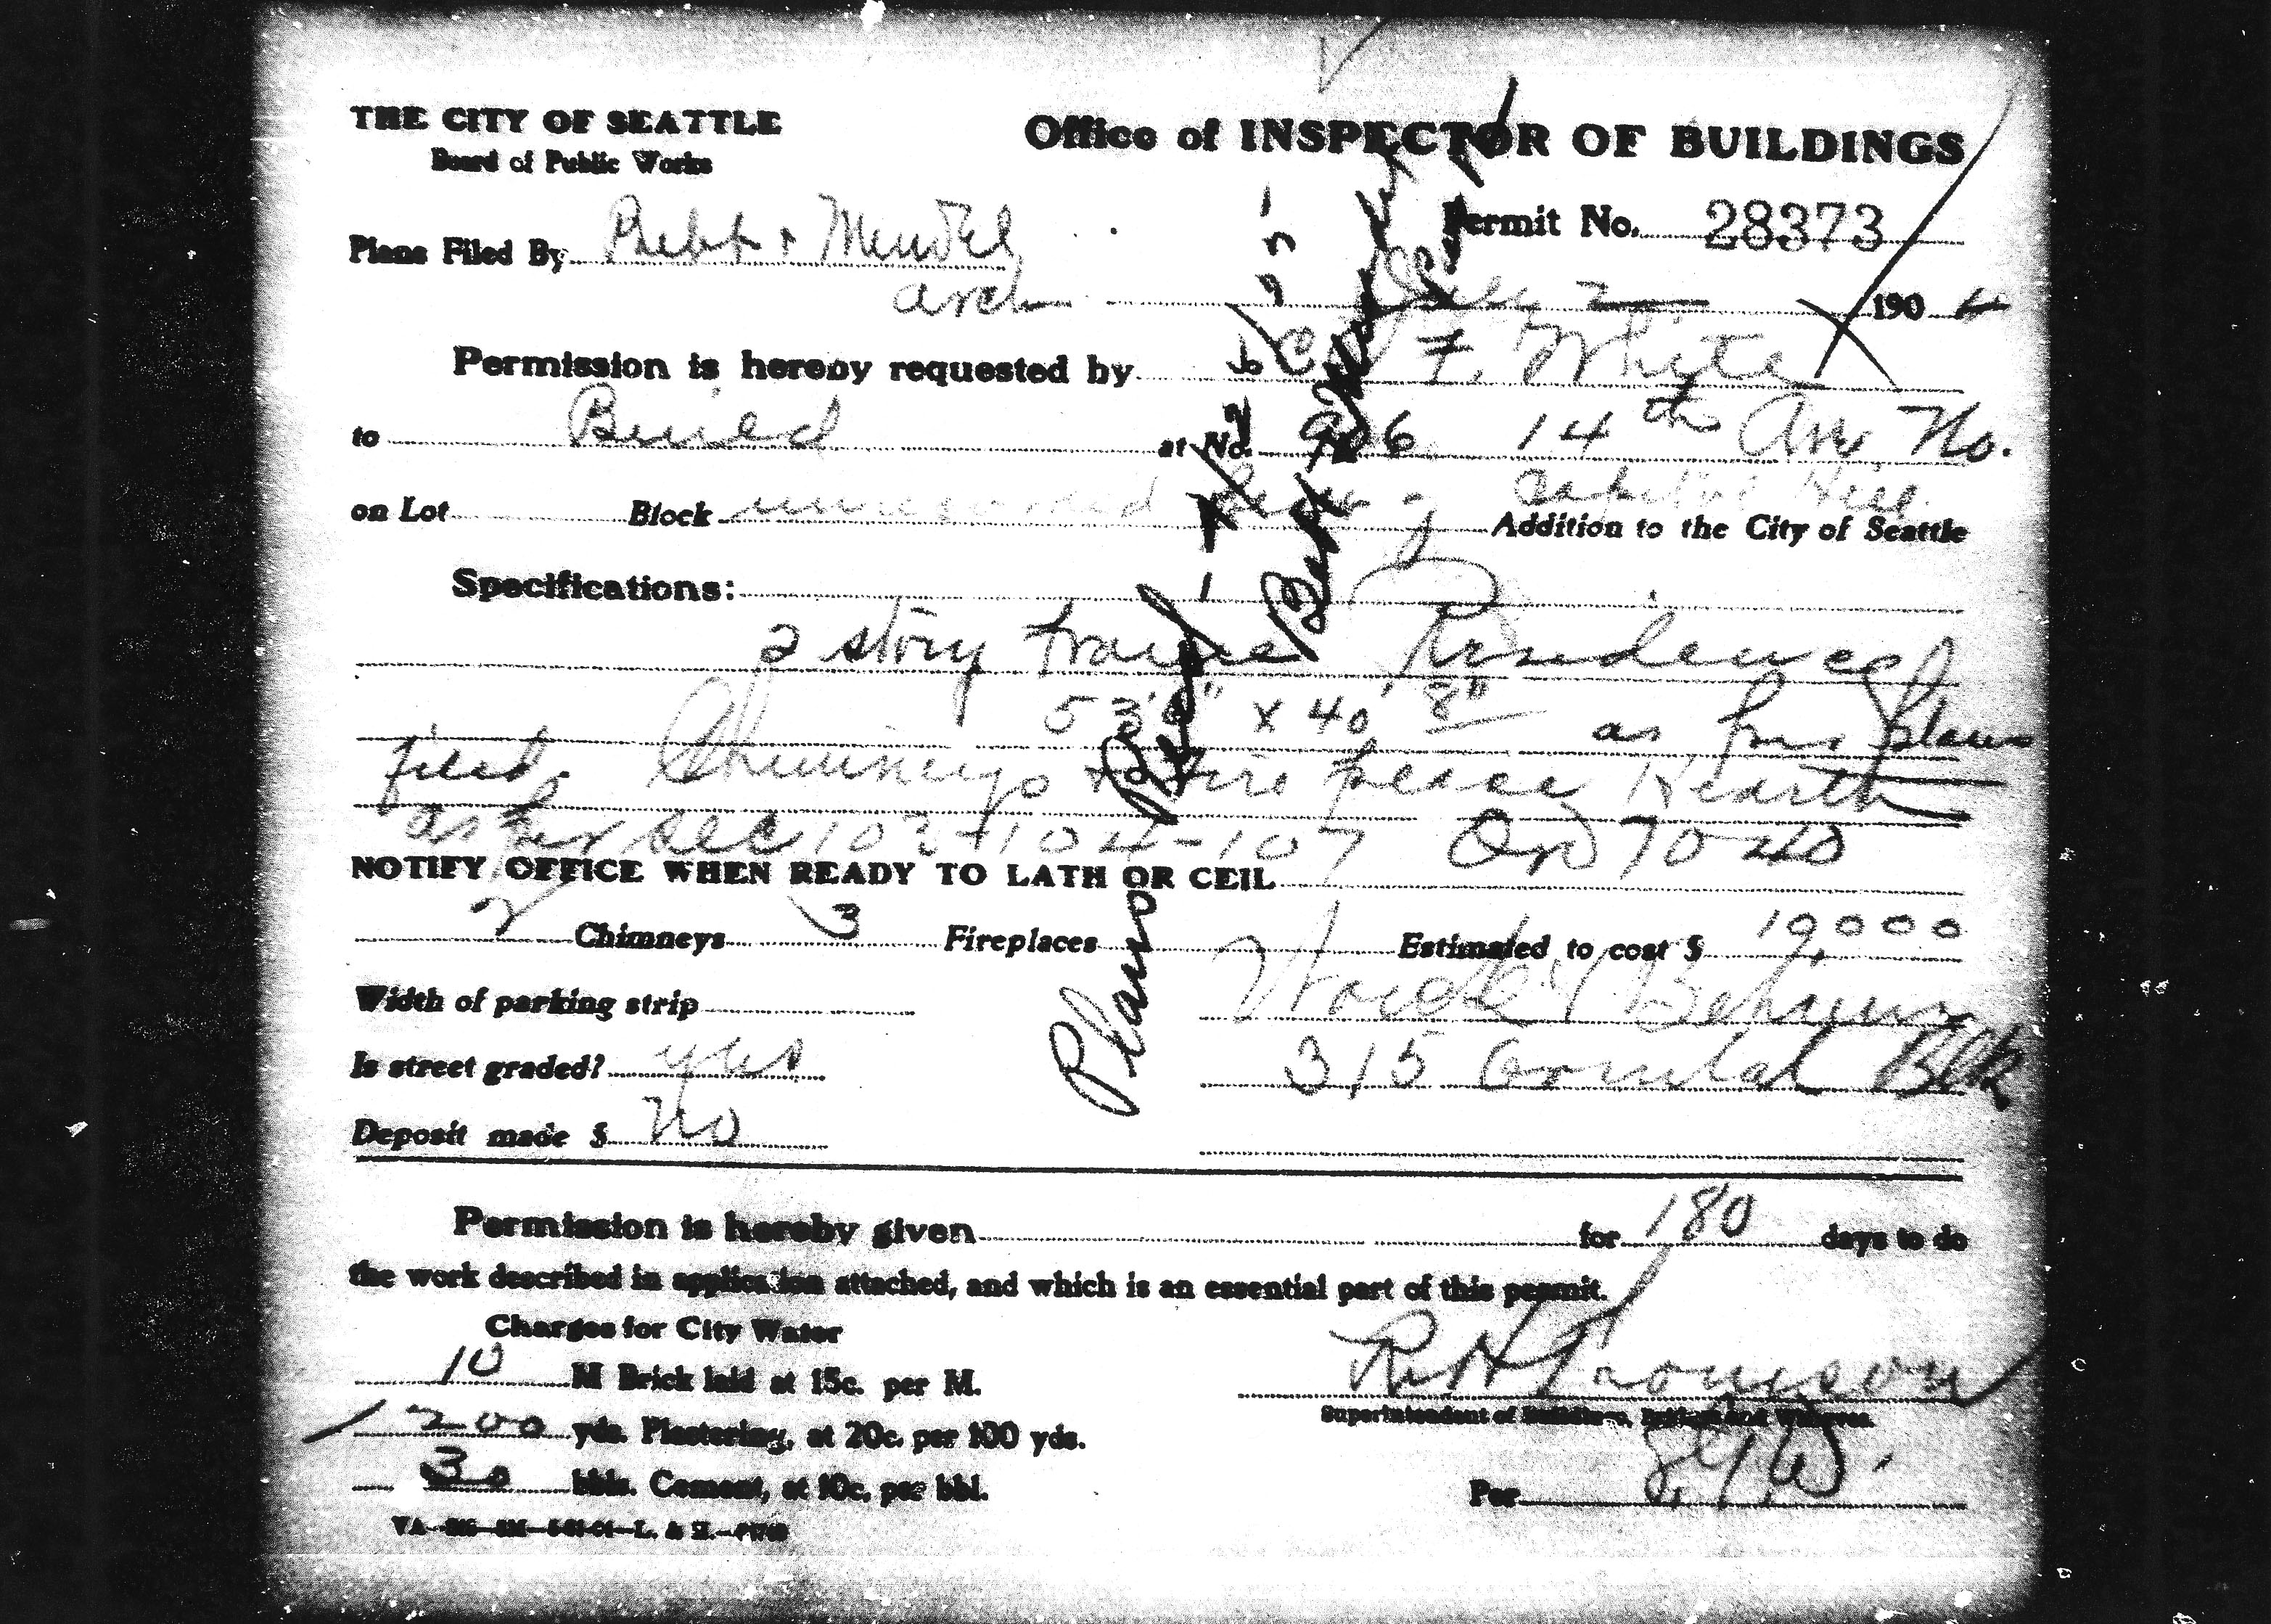 THE CITY OF SEATTLE
Board of Public Works
Office of INSPECTOR OF BUILDINGS
Permit No. 28373
Plans Filed By Bebb & Mendel
arch
July 2 190 4
Permission is hereby requested by C. F. White
to Build at No. 906 14th Ave No.
on Lot Block unrecorded Capitol Hill Addition to the City of Seattle
Specifications:
2 story frame Residence
53' x 40' 8" as per plans
filed. Chimneys & Fire place Hearth
as per sec 103-104-107 Ord 7040
NOTIFY OFFICE WHEN READY TO LATH OR CEIL
2 Chimneys 3 Fireplaces Estimated to cost $ 19,000
Width of parking strip
Is street graded? yes
315 Blk
Deposit made $ No
Plans
Permission is hereby given for 180 days to do
the work described in application attached, and which is an essential part of this permit.
Charges for City Water
10 M Brick laid at 15c. per M.
1200 yds. Plastering, at 20c. per 100 yds.
30 bbls. Cement, at 10c. per bbl.
R H Thomson
Superintendent of Buildings, Bridges and Wharves.
Per